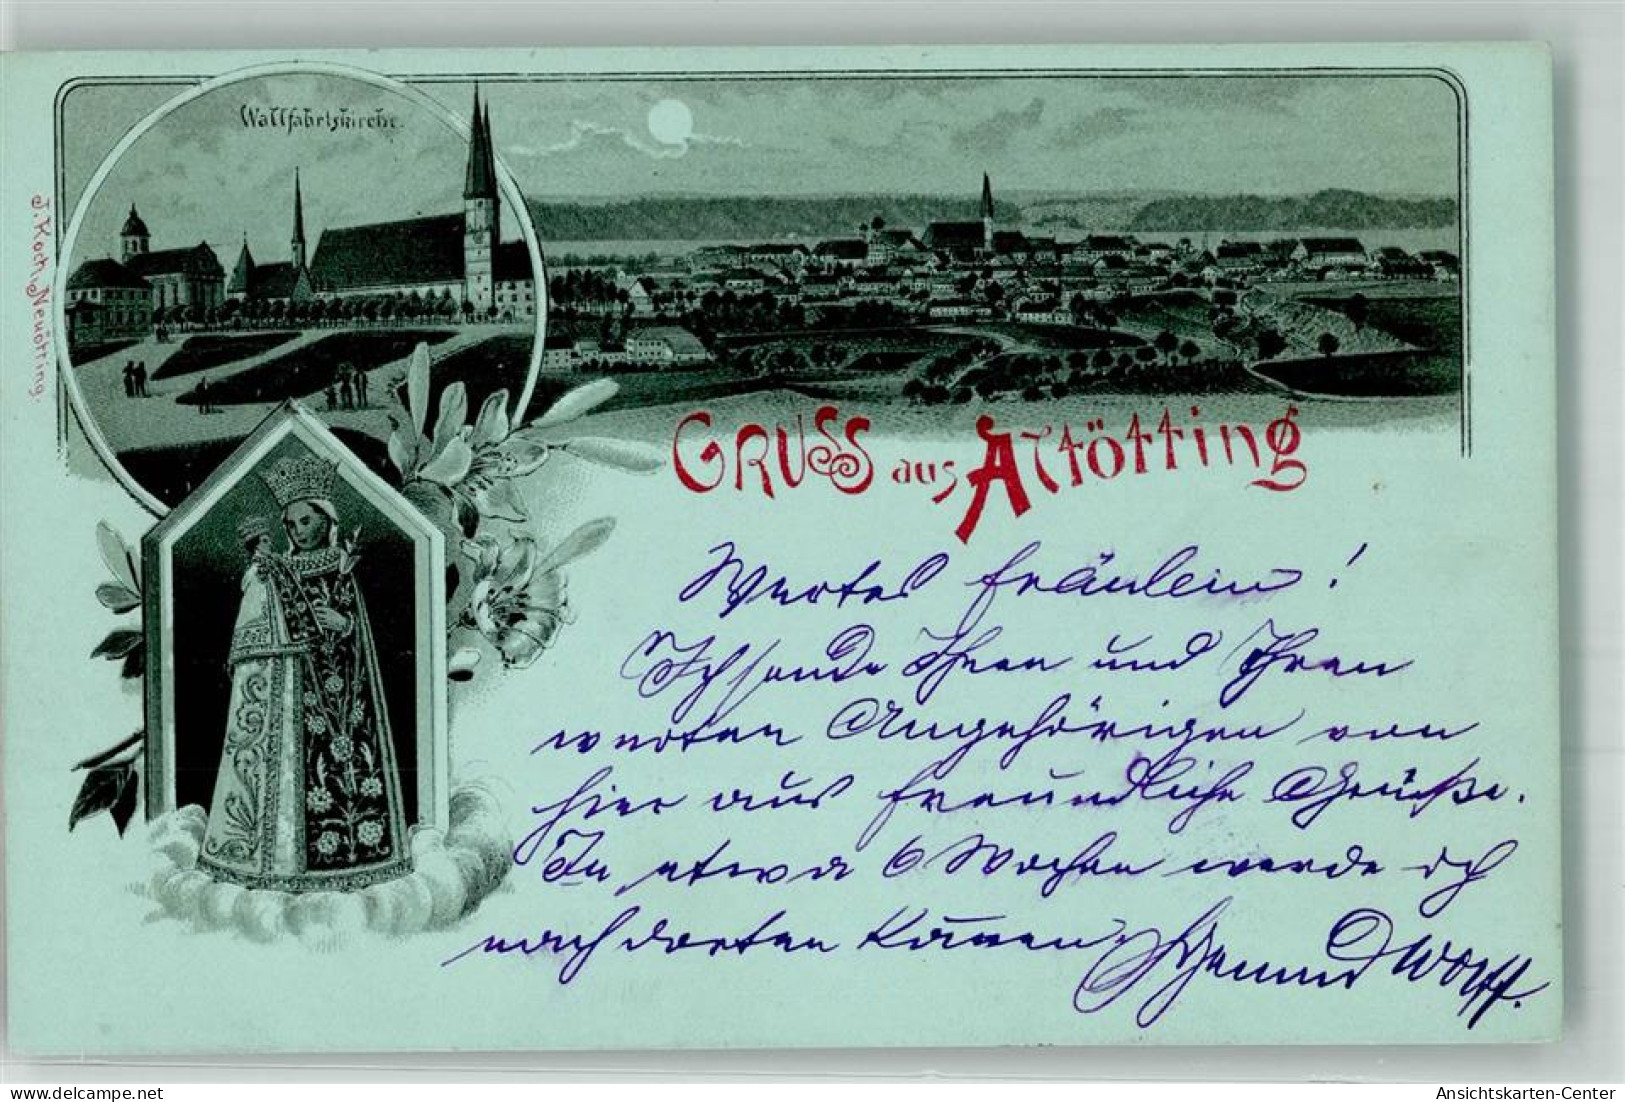 Wallfahrtskirche.
J. Koch, Neuötting.
GRUSS aus Altötting
Wertes Fräulein!
Ich sende Ihnen und Ihren
werten Angehörigen von
hier aus freundliche Grüße.
In etwa 6 Wochen werde ich
nach dorten kommen
Wolff.
Ansichtskarten-Center